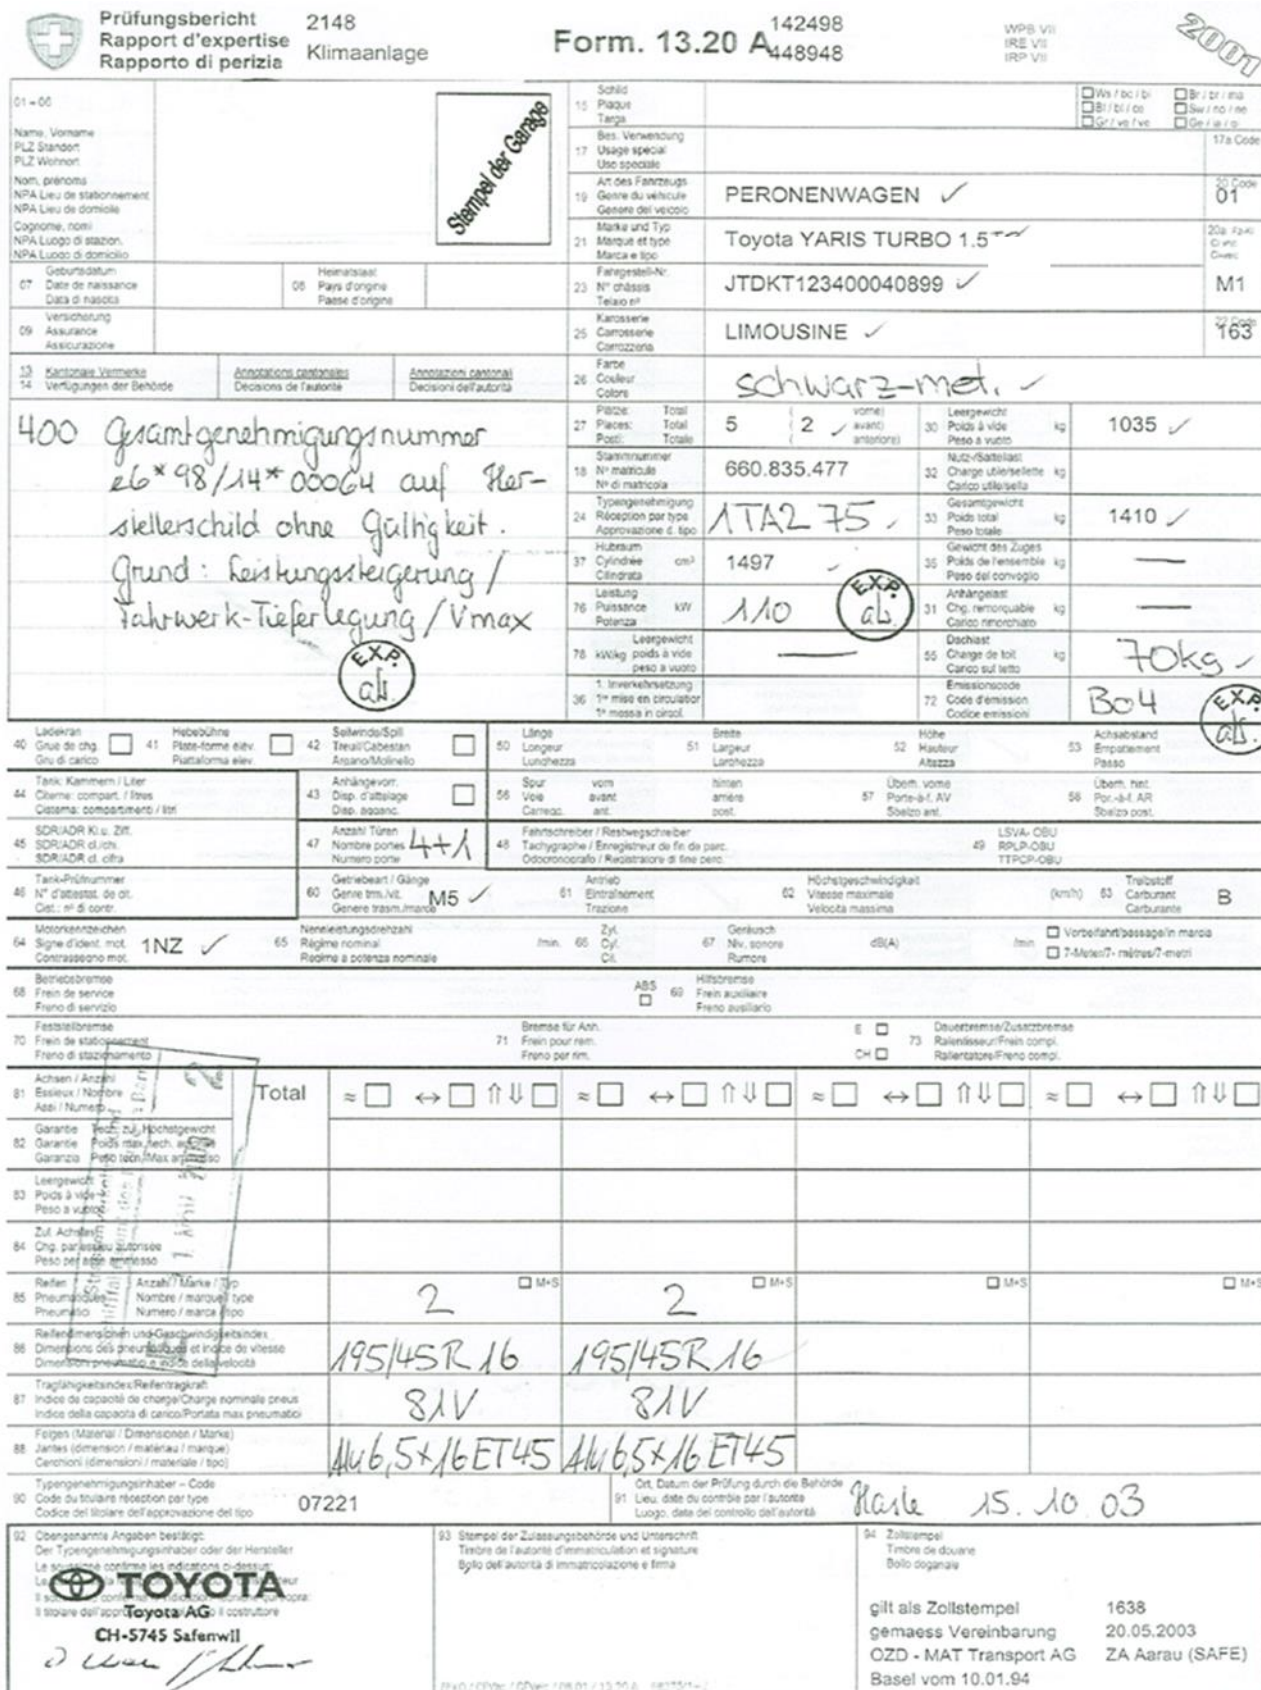 Prüfungsbericht
Rapport d'expertise
Rapporto di perizia
2148
Klimaanlage
Form. 13.20 A
142498
448948
WPB VII
IRE VII
IRP VII
2001
01 – 06
Name, Vorname
PLZ Standort
PLZ Wohnort
Nom, prénoms
NPA Lieu de stationnement
NPA Lieu de domicile
Cognome, nomi
NPA Luogo di stazion.
NPA Luogo di domicilio
Stempel der Garage
15 Schild
Plaque
Targa
Ws / bc / bi
Bl / bl / co
Gr / ve / ve
Br / br / ma
Sw / no / ne
Ge / ja / gi
17 Bes. Verwendung
Usage special
Uso speciale
17a Code
19 Art des Fahrzeugs
Genre du véhicule
Genere del veicolo
PERONENWAGEN ✓
20 Code
01
21 Marke und Typ
Marque et type
Marca e tipo
Toyota YARIS TURBO 1.5
07 Geburtsdatum
Date de naissance
Data di nascita
08 Heimatstaat
Pays d'origine
Paese d'origine
23 Fahrgestell-Nr.
N° châssis
Telaio nº
JTDKT123400040899 ✓
M1
09 Versicherung
Assurance
Assicurazione
25 Karosserie
Carrosserie
Carrozzeria
LIMOUSINE ✓
22 Code
163
13 Kantonale Vermerke
14 Verfügungen der Behörde
Annotations cantonales
Decisions de l'autorité
Annotazioni cantonali
Decisioni dell'autorità
26 Farbe
Couleur
Colore
schwarz-met. ✓
400 Gesamtgenehmigungsnummer
e6*98/14*00064 auf Her-
stellerschild ohne Gültigkeit.
Grund: Leistungssteigerung /
Fahrwerk-Tieferlegung / Vmax
E.X.P.
ab.
27 Plätze: Total
Places: Total
Posti: Totale
5 ( 2 ✓ vorne)
avant)
anteriore)
30 Leergewicht
Poids à vide kg
Peso a vuoto
1035 ✓
18 Stammnummer
N° matricule
Nº di matricola
660.835.477
32 Nutz-/Sattellast
Charge utile/sellette kg
Carico utile/sella
24 Typengenehmigung
Réception par type
Approvazione d. tipo
1TA2 75
33 Gesamtgewicht
Poids total kg
Peso totale
1410 ✓
37 Hubraum
Cylindrée cm³
Cilindrata
1497
35 Gewicht des Zuges
Poids de l'ensemble kg
Peso del convoglio
—
76 Leistung
Puissance kW
Potenza
110
E.X.P.
ab.
31 Anhängelast
Chg. remorquable kg
Carico rimorchiato
—
78 Leergewicht
kW/kg poids à vide
peso a vuoto
—
55 Dachlast
Charge de toit kg
Carico sul tetto
70kg ✓
36 1. Inverkehrsetzung
1re mise en circulation
1ª messa in circol.
72 Emissionscode
Code d'émission
Codice emissioni
B04
E.X.P.
ab.
40 Ladekran
Grue de chg.
Gru di carico
41 Hebebühne
Plate-forme élév.
Piattaforma elev.
42 Seilwinde/Spill
Treuil/Cabestan
Argano/Molinello
50 Länge
Longeur
Lunghezza
51 Breite
Largeur
Larghezza
52 Höhe
Hauteur
Altezza
53 Achsabstand
Empattement
Passo
44 Tank: Kammern / Liter
Citerne: compart. / litres
Cisterna: compartimenti / litri
43 Anhängevorr.
Disp. d'attelage
Disp. agganc.
56 Spur vorn hinten
Voie avant arrière
Carregg. ant. post.
57 Überh. vorne
Porte-à-f. AV
Sbalzo ant.
58 Überh. hint.
Por.-à-f. AR
Sbalzo post.
45 SDR/ADR Kl.u. Ziff.
SDR/ADR cl./chi.
SDR/ADR cl. cifra
47 Anzahl Türen
Nombre portes
Numero porte
4+1
48 Fahrtschreiber / Restwegschreiber
Tachygraphe / Enregistreur de fin de parc.
Odocronografo / Registratore di fine perc.
49 LSVA- OBU
RPLP-OBU
TTPCP-OBU
46 Tank-Prüfnummer
N° d'attestat. de cit.
Cist.: nº di contr.
60 Getriebeart / Gänge
Genre trm./vit.
Genere trasm./marce
M5 ✓
61 Antrieb
Entraînement
Trazione
62 Höchstgeschwindigkeit
Vitesse maximale (km/h)
Velocità massima
63 Treibstoff
Carburant
Carburante
B
64 Motorkennzeichen
Signe d'ident. mot.
Contrassegno mot.
1NZ ✓
65 Nennleistungsdrehzahl
Régime nominal /min.
Regime a potenza nominale
66 Zyl.
Cyl.
Cil.
67 Geräusch
Niv. sonore dB(A) /min
Rumore
Vorbeifahrt/passage/in marcia
7-Meter/7- mètres/7-metri
68 Betriebsbremse
Frein de service
Freno di servizio
ABS
69 Hilfsbremse
Frein auxiliaire
Freno ausiliario
70 Feststellbremse
Frein de stationnement
Freno di stazionamento
71 Bremse für Anh.
Frein pour rem.
Freno per rim.
E
CH
73 Dauerbremse/Zusatzbremse
Ralentisseur/Frein compl.
Rallentatore/Freno compl.
81 Achsen / Anzahl
Essieux / Nombre
Assi / Numero
2
Total
≈ ↔ ⇑⇓ ≈ ↔ ⇑⇓ ≈ ↔ ⇑⇓ ≈ ↔ ⇑⇓
82 Garantie Tech. zul. Höchstgewicht
Garantie Poids max. tech. autorisé
Garanzia Peso tecn./Max ammesso
83 Leergewicht
Poids à vide
Peso a vuoto
84 Zul. Achslast
Chg. par essieu autorisée
Peso per asse ammesso
85 Reifen Anzahl / Marke / Typ
Pneumatiques Nombre / marque / type
Pneumatici Numero / marca / tipo
2 M+S 2 M+S M+S M+S
86 Reifendimensionen und Geschwindigkeitsindex
Dimensions des pneumatiques et indice de vitesse
Dimensioni pneumatici e indice della velocità
195/45R 16 195/45R 16
87 Tragfähigkeitsindex/Reifentragkraft
Indice de capacité de charge/Charge nominale pneus
Indice della capacità di carico/Portata max pneumatici
81V 81V
88 Felgen (Material / Dimensionen / Marke)
Jantes (dimension / matériau / marque)
Cerchioni (dimensioni / materiale / tipo)
Alu 6,5x16 ET45 Alu 6,5x16 ET45
90 Typengenehmigungsinhaber – Code
Code du titulaire réception par type
Codice del titolare dell'approvazione del tipo
07221
91 Ort, Datum der Prüfung durch die Behörde
Lieu, date du contrôle par l'autorité
Luogo, data del controllo dall'autorità
Hasle 15. 10 03
92 Obengenannte Angaben bestätigt:
Der Typengenehmigungsinhaber oder der Hersteller
Le soussigné confirme les indications ci-dessus:
TOYOTA
Toyota AG
CH-5745 Safenwil
93 Stempel der Zulassungsbehörde und Unterschrift
Timbre de l'autorité d'immatriculation et signature
Bollo dell'autorità di immatricolazione e firma
94 Zollstempel
Timbre de douane
Bollo doganale
gilt als Zollstempel 1638
gemaess Vereinbarung 20.05.2003
OZD - MAT Transport AG ZA Aarau (SAFE)
Basel vom 10.01.94